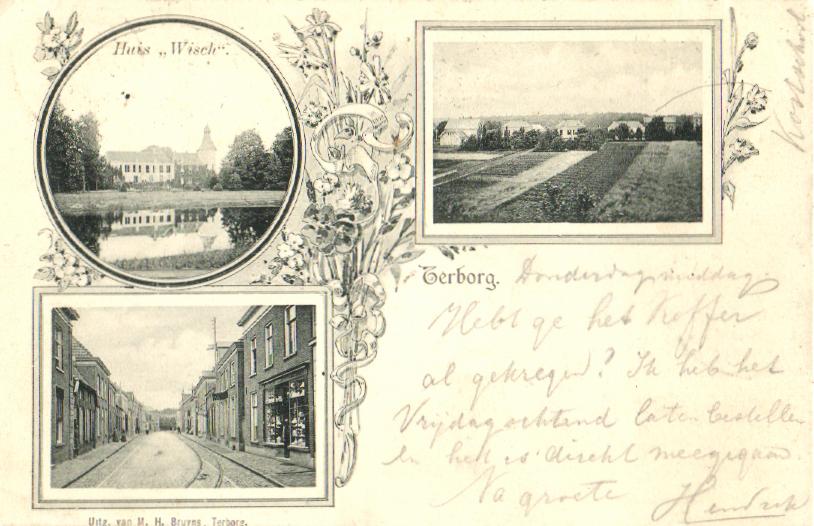 Huis „Wisch".
Terborg.
Donderdagmiddag.
Hebt ge het koffer
al gekregen? Ik heb het
Vrijdagochtend laten bestellen
en het is direkt meegegaan.
Na groete
Hendrik
Uitg. van M. H. Bruyns, Terborg.